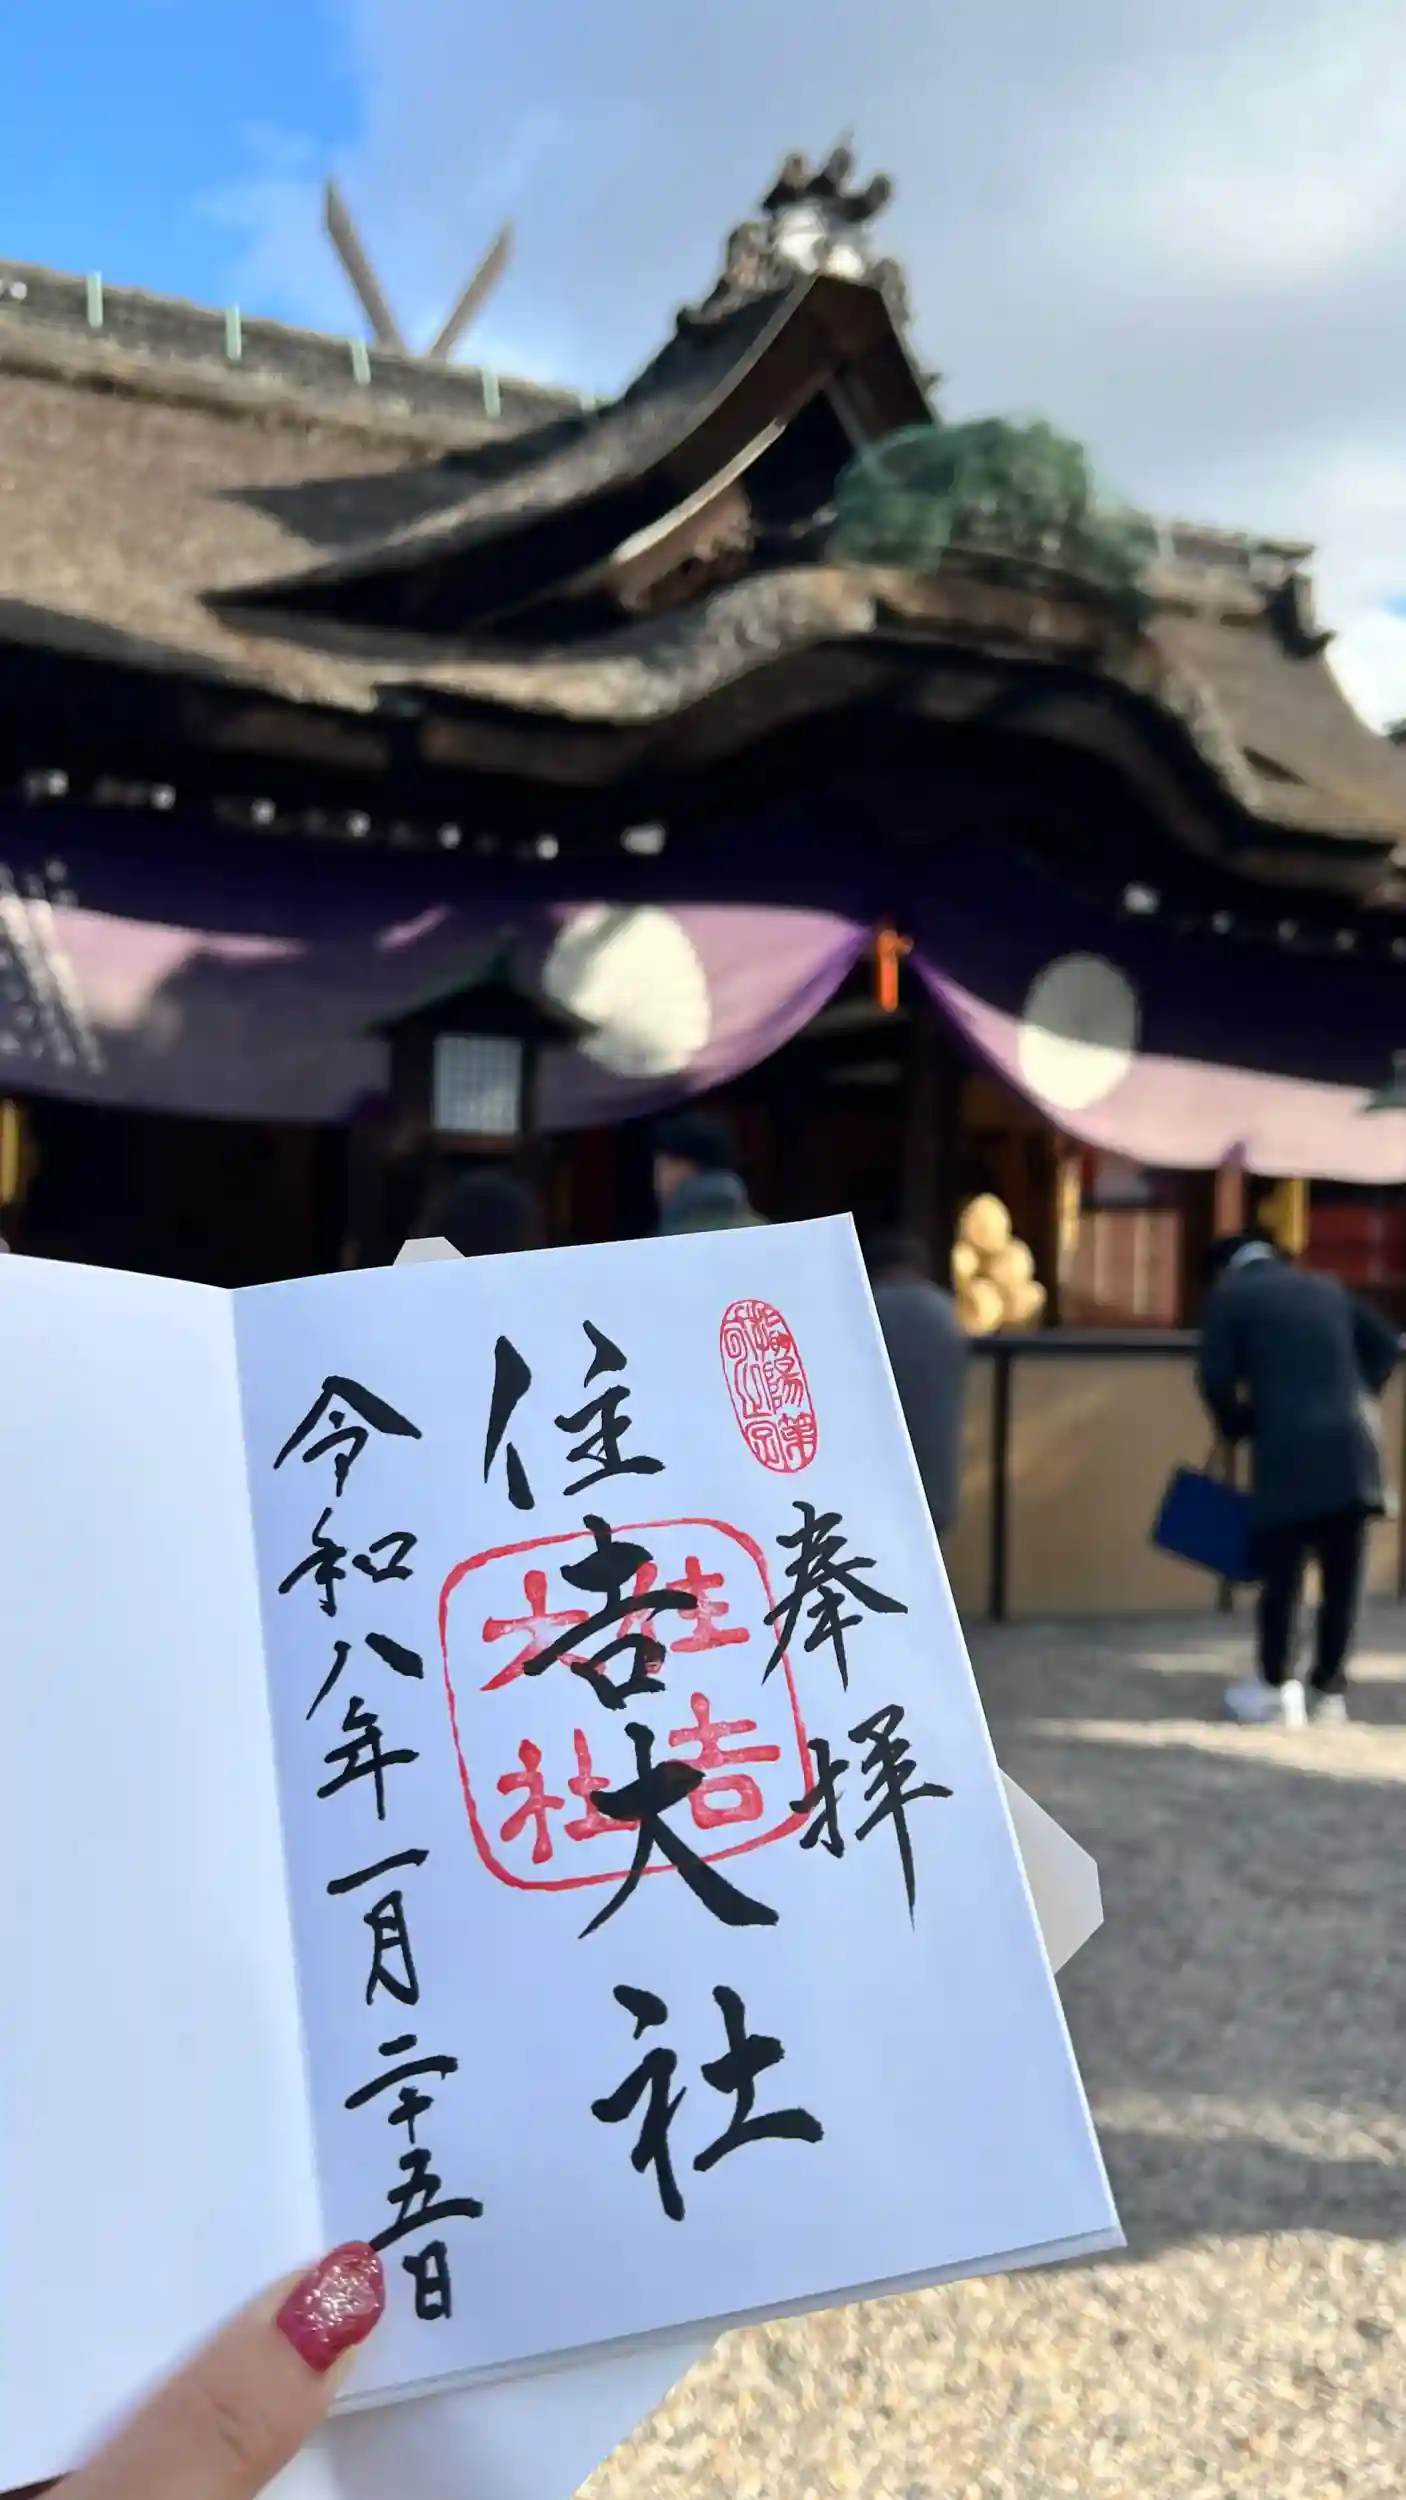 奉拝
住吉大社
令和八年一月二十五日
住吉
大社